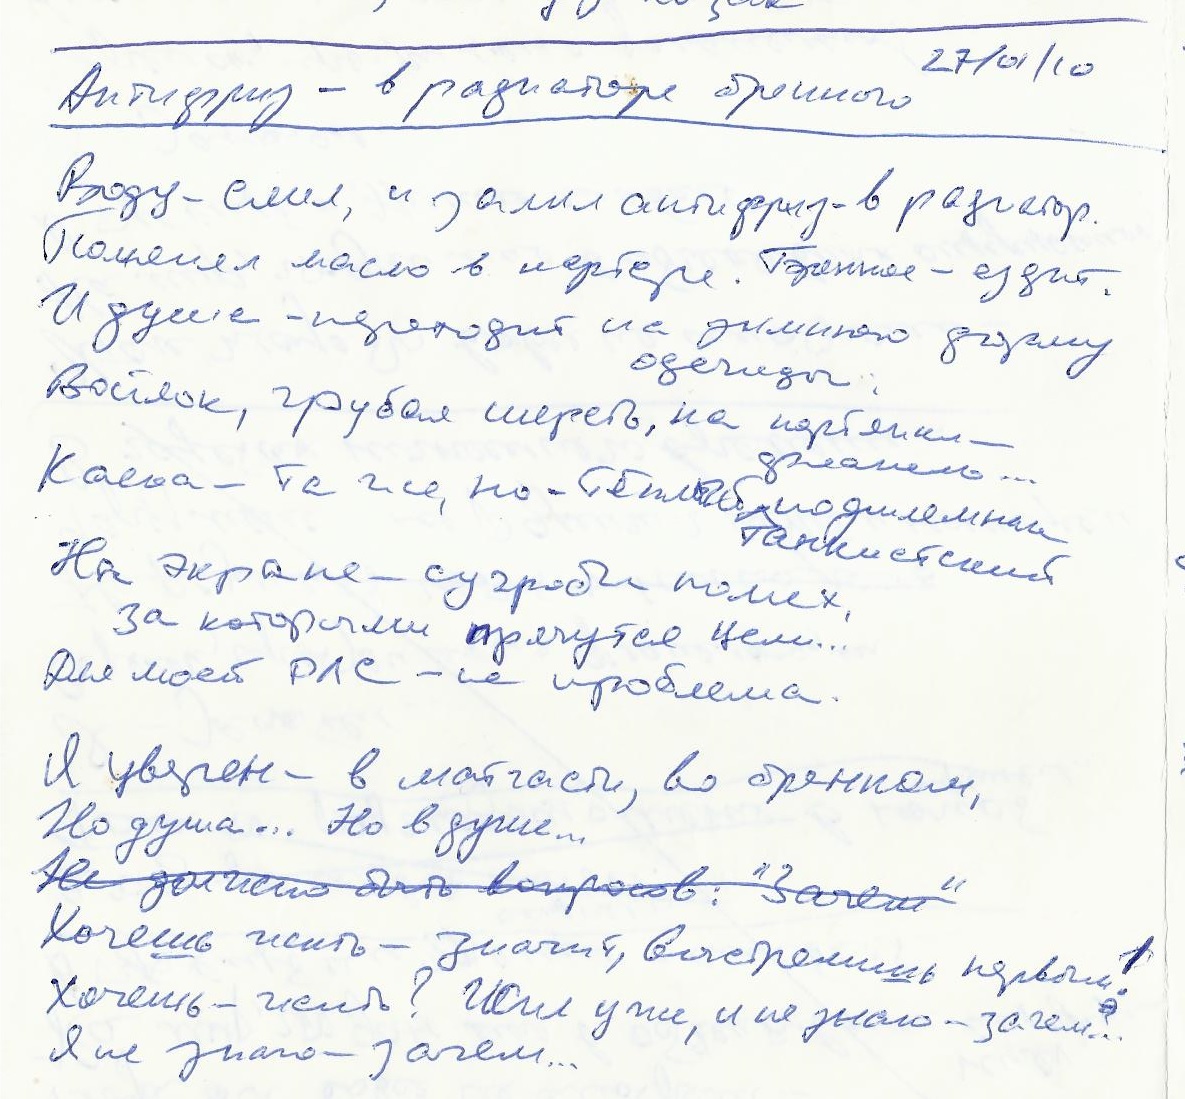 27/01/10
Антифриз – в радиаторе бренного
Воду – слил, и залил антифриз – в радиатор.
Поменял масло в картере. Бренное – ездит.
И душа – переходит на зимнюю форму
одежды:
Войлок, грубая шерсть, на портянки –
Каска – та же, но – тёплый, подшлемник
танкистский
На экране – сугробы помех,
за которыми прячутся цели...
Для моей РЛС – не проблема.
Я уверен – в матчасти, во бренном,
Но душа... Но в душе...
Не должно быть вопросов: "Зачем"
Хочешь жить – значит, выстрелишь первым!
Хочешь – жить? Жил уже, и не знаю – зачем?..
Я не знаю – зачем...